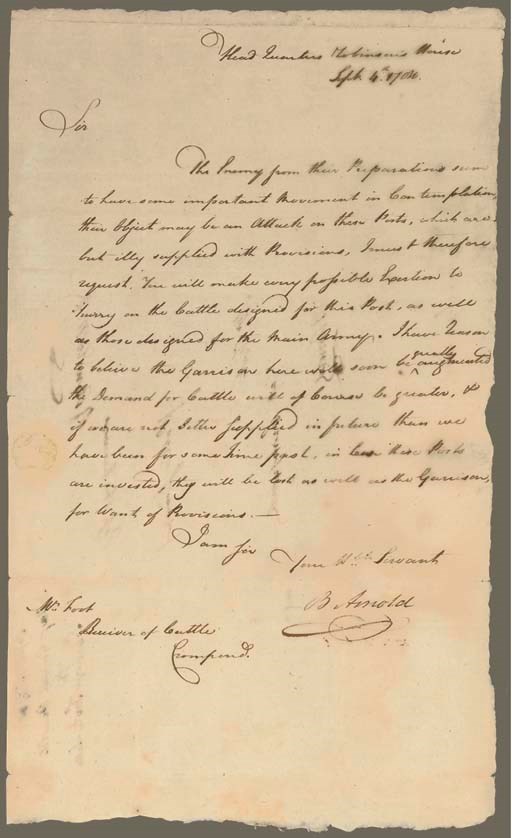 Head Quarters Robinson's House
Sept. 4th. 1780.
Sir
The Enemy from their Preparations seem
to have some important Movement in Contemplation,
their Object may be an Attack on these Posts, which are
but illy supplied with Provisions, I must therefore
request You will make every possible Exertion to
hurry on the Cattle designed for this Post, as well
as those designed for the Main Army. I have reason
to believe the Garrison here will soon be greatly augmented
the Demand for Cattle will of Course be greater, &
if we are not better supplied in future than we
have been for some time past, in Case these Posts
are invested, they will be lost as well as the Garrison,
for Want of Provisions.—
I am Sir
Your Hble. Servant
B Arnold
Mr. Foot
Receiver of Cattle
Crompond.